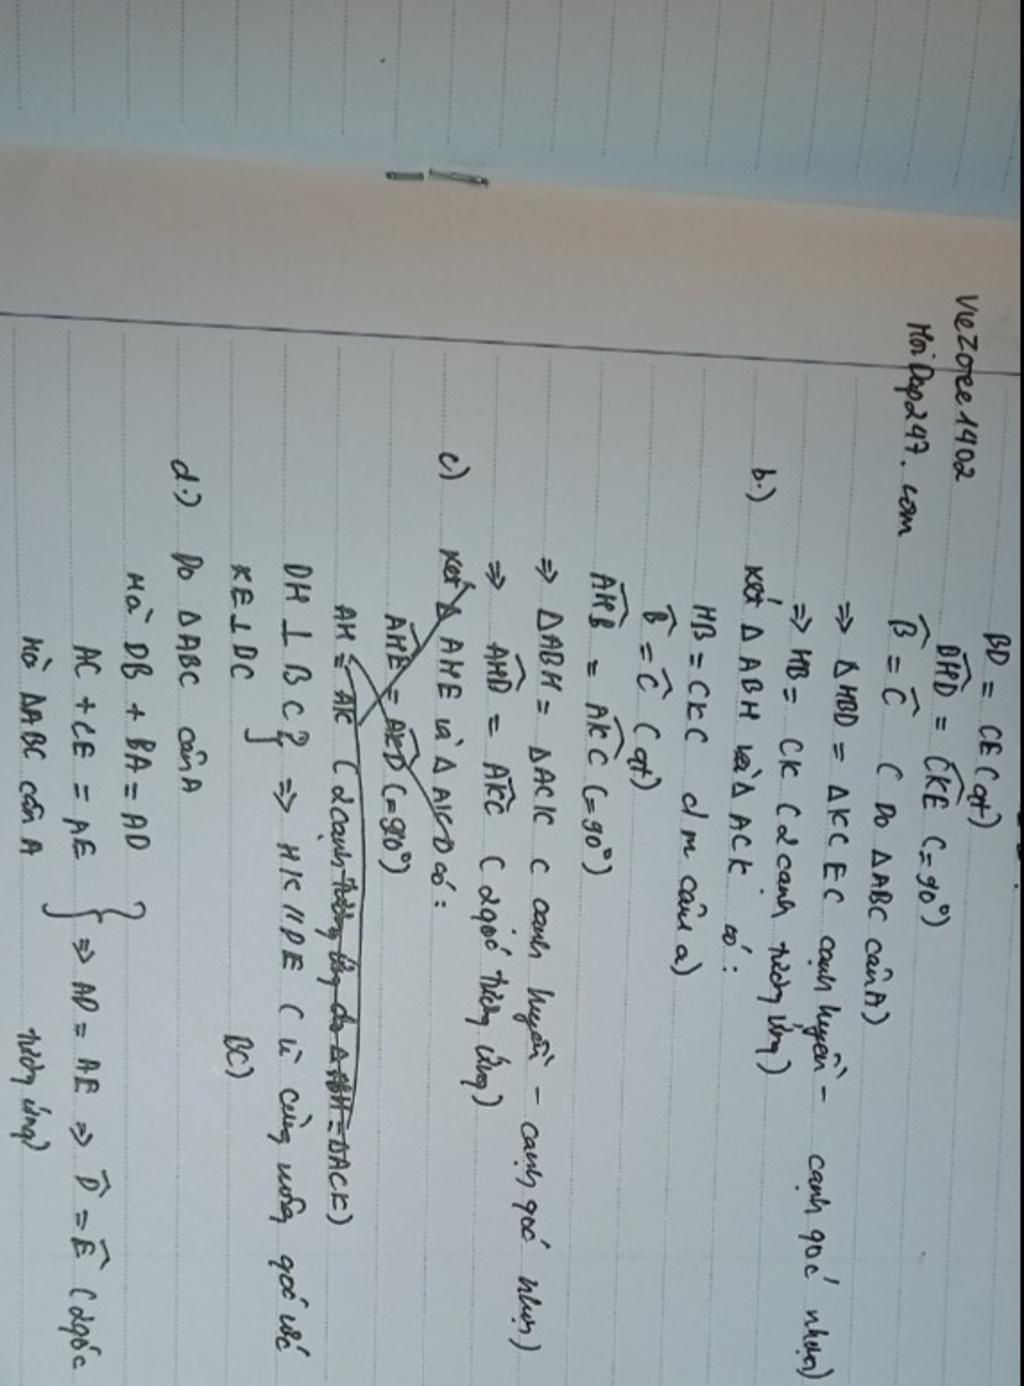 VieZoree1402
HoiDap247.com
BD = CE (gt)
DHD = CKE (=90°)
B̂ = Ĉ ( Do ΔABC cân A)
=> ΔHBD = ΔKCE C cạnh huyền - cạnh góc nhọn)
=> HB = CK ( 2 cạnh tương ứng)
b.) xét ΔABH và ΔACK có:
HB = CK C dm câu a)
B̂ = Ĉ (gt)
AHB = AKC (=90°)
=> ΔABH = ΔACK C cạnh huyền - cạnh góc nhọn)
=> AHD = AKC ( 2 góc tương ứng)
c) xét Δ AHE và Δ AKD có:
AHE = AKD (=90°)
AH = AK ( 2 cạnh tương ứng do ΔABH = ΔACK)
DH ⊥ BC } => HK // DE ( vì cùng vuông góc vớc
KE ⊥ DC BC)
d.) Do ΔABC cân A
Mà DB + BA = AD }
AC + CE = AE } => AD = AE => D̂ = Ê (2 góc
Mà ΔABC cân A tương ứng)